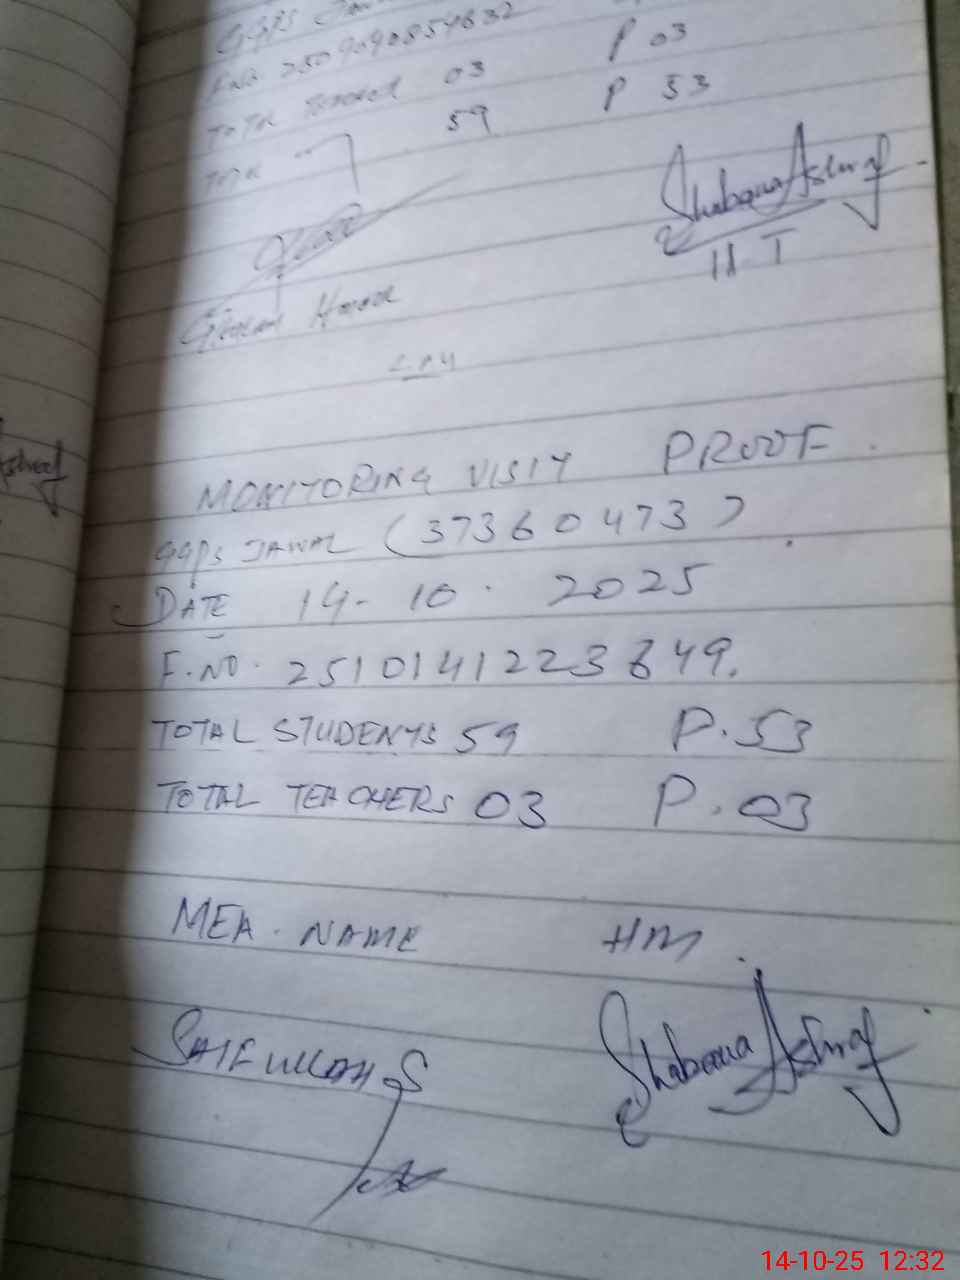 GGPS
F.No. 2509090854632
TOTAL TEACHER 03 P 03
TOTAL 59 P 53
Shabana Ashraf
H T
MONITORING VISIT PROOF.
GGPS JAWAL (37360473)
DATE 14-10.2025
F.NO. 2510141223649.
TOTAL STUDENTS 59 P.53
TOTAL TEACHERS 03 P.03
MEA. NAME HM.
SAIFULLAH S Shabana Ashraf
Ashraf
14-10-25 12:32